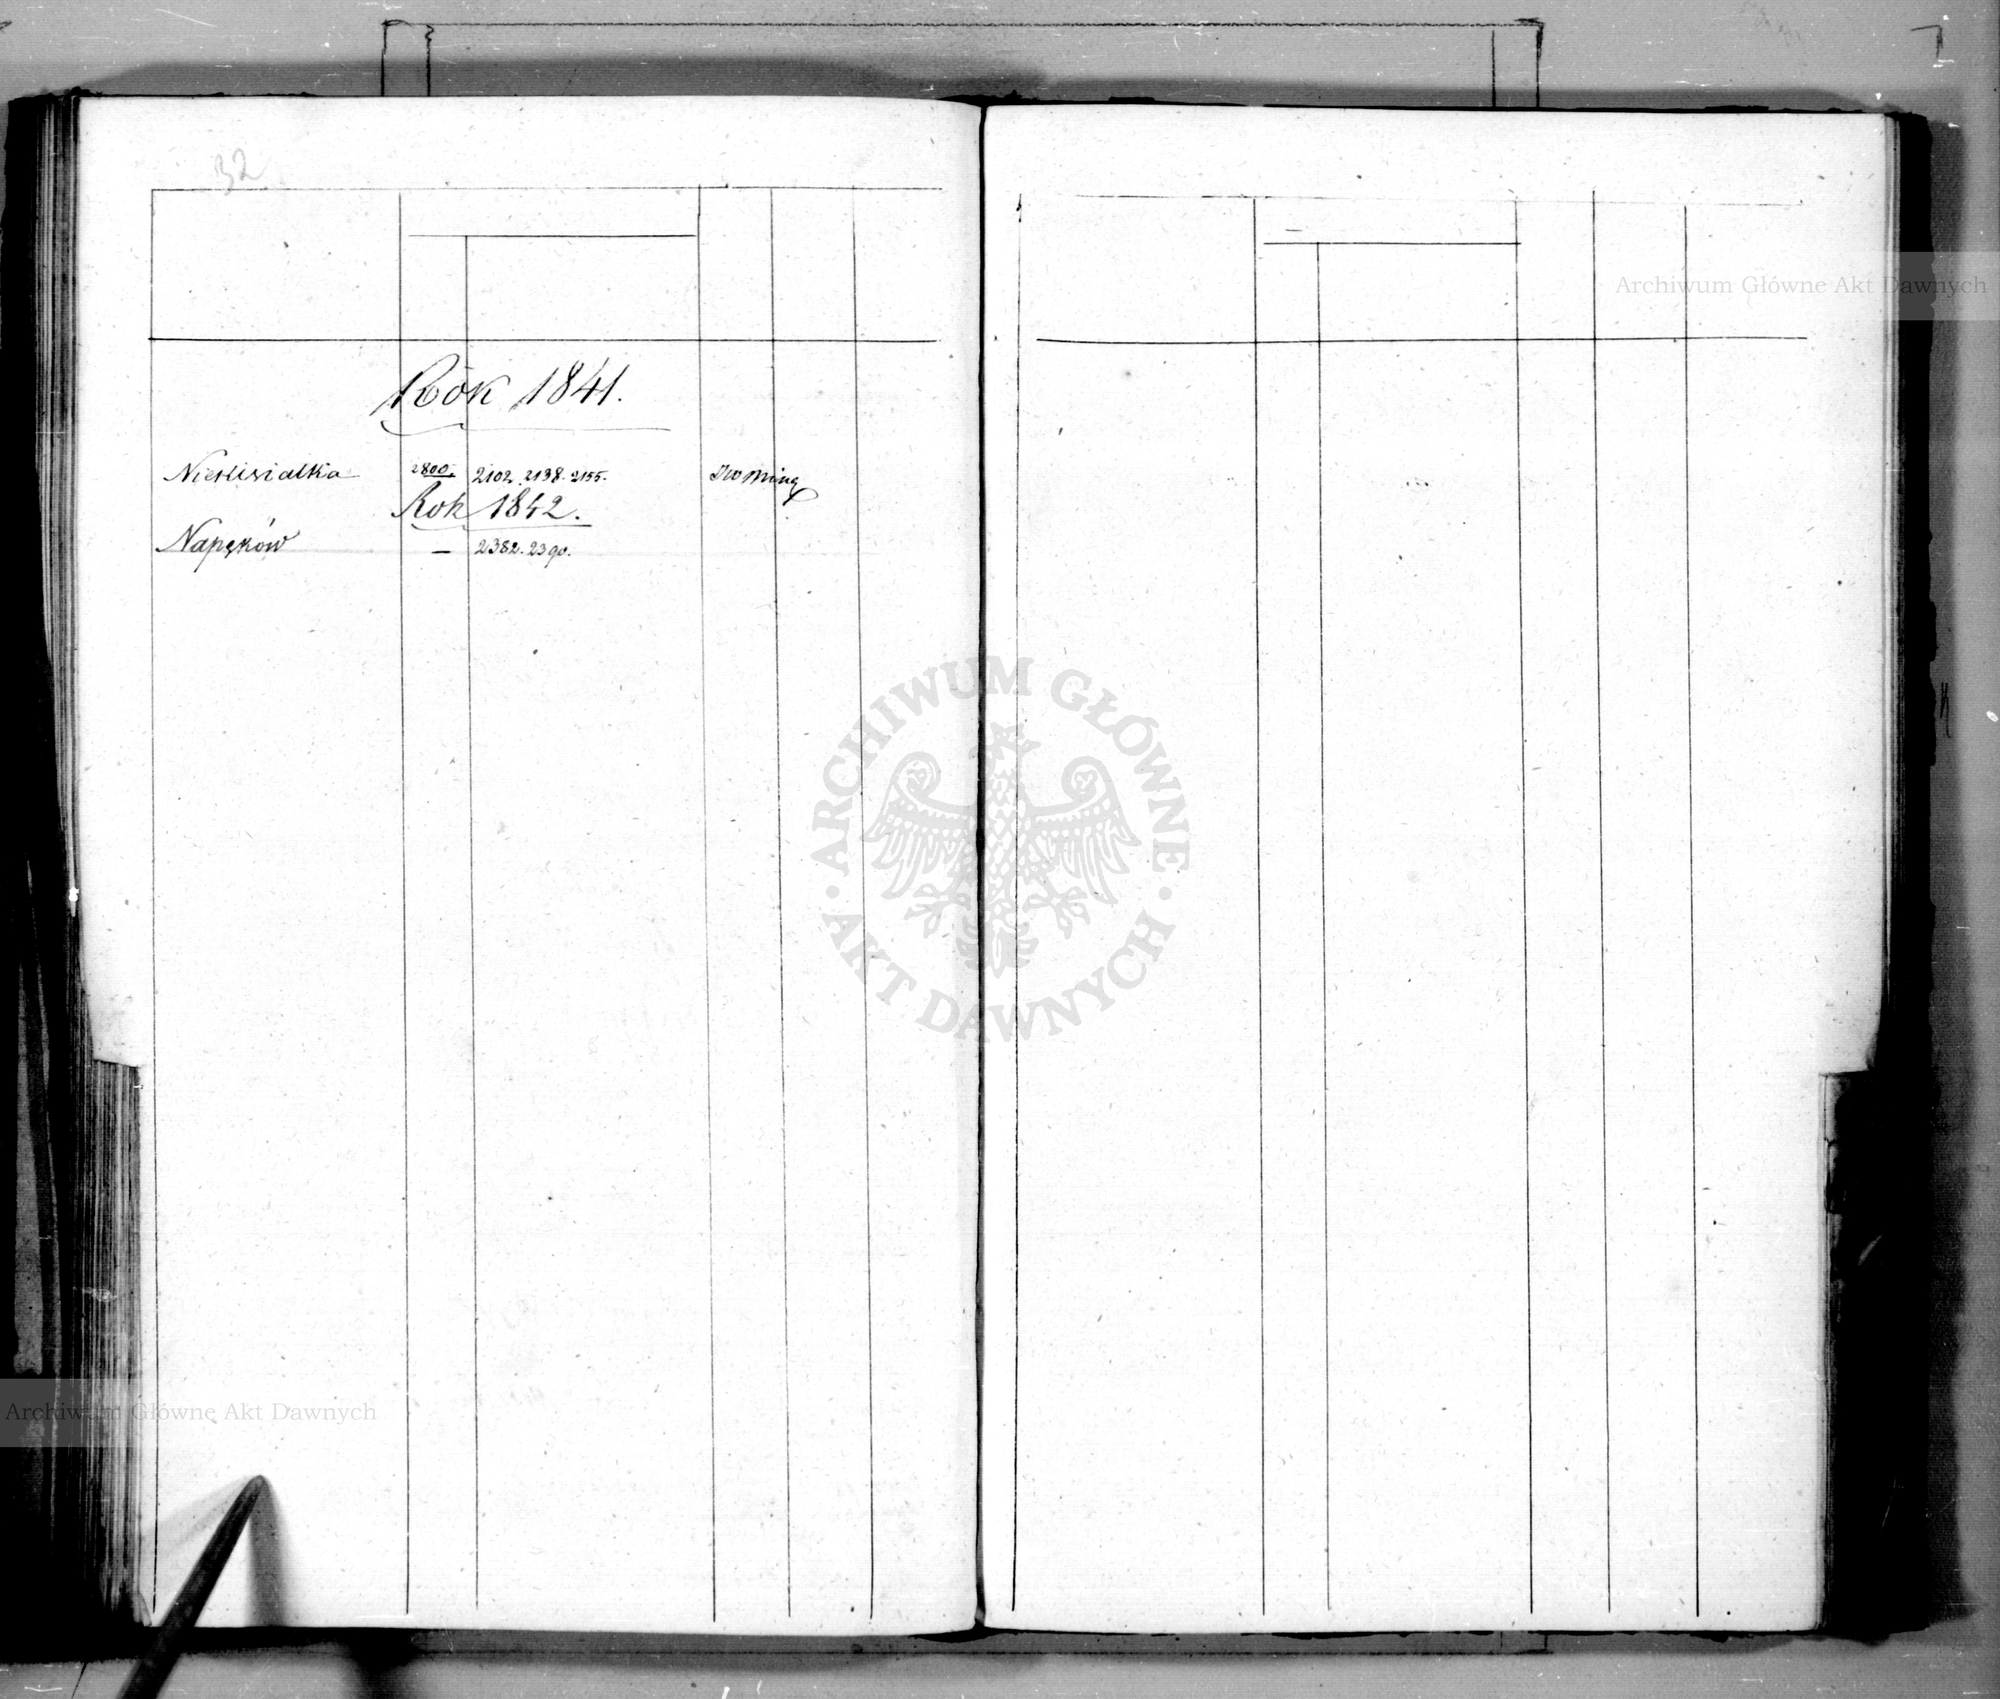 32
Rok 1841.
2800. 2102. 2138. 2155.
Rok 1842.
Napęków — 2382. 2390.
Archiwum Główne Akt Dawnych
ARCHIWUM GŁÓWNE
· AKT DAWNYCH ·
Archiwum Główne Akt Dawnych